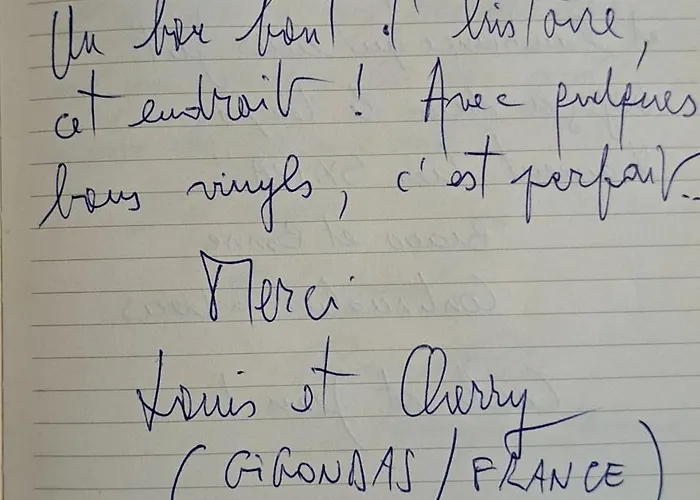 Un bon bout d'histoire,
cet endroit ! Avec quelques
bons vinyls, c'est parfait..
Merci
Louis et Cherry
(GIGONDAS / FRANCE)